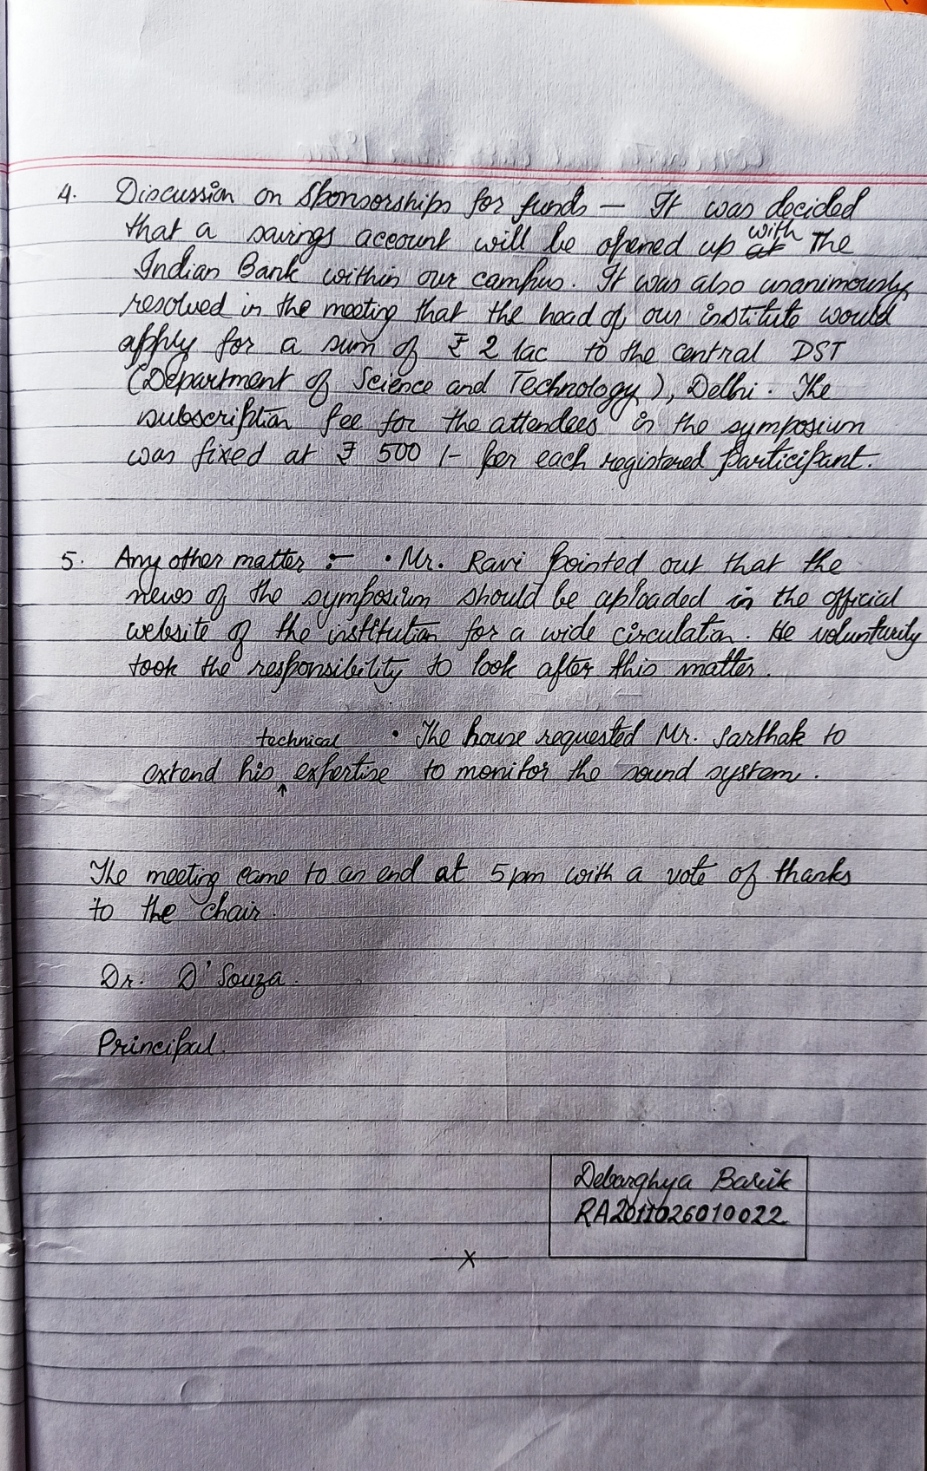 4. Discussion on Sponsorships for funds — It was decided
that a savings account will be opened up with the
Indian Bank within our campus. It was also unanimously
resolved in the meeting that the head of our institute would
apply for a sum of ₹ 2 lac to the central DST
(Department of Science and Technology), Delhi. The
subscription fee for the attendees in the symposium
was fixed at ₹ 500 /- per each registered participant.
5. Any other matter :- • Mr. Ravi pointed out that the
news of the symposium should be uploaded in the official
website of the institution for a wide circulation. He voluntarily
took the responsibility to look after this matter.
• The house requested Mr. Sarthak to
extend his technical expertise to monitor the sound system.
The meeting came to an end at 5 pm with a vote of thanks
to the chair.
Dr. D'Souza.
Principal.
Debarghya Barik
RA2011026010022
—x—